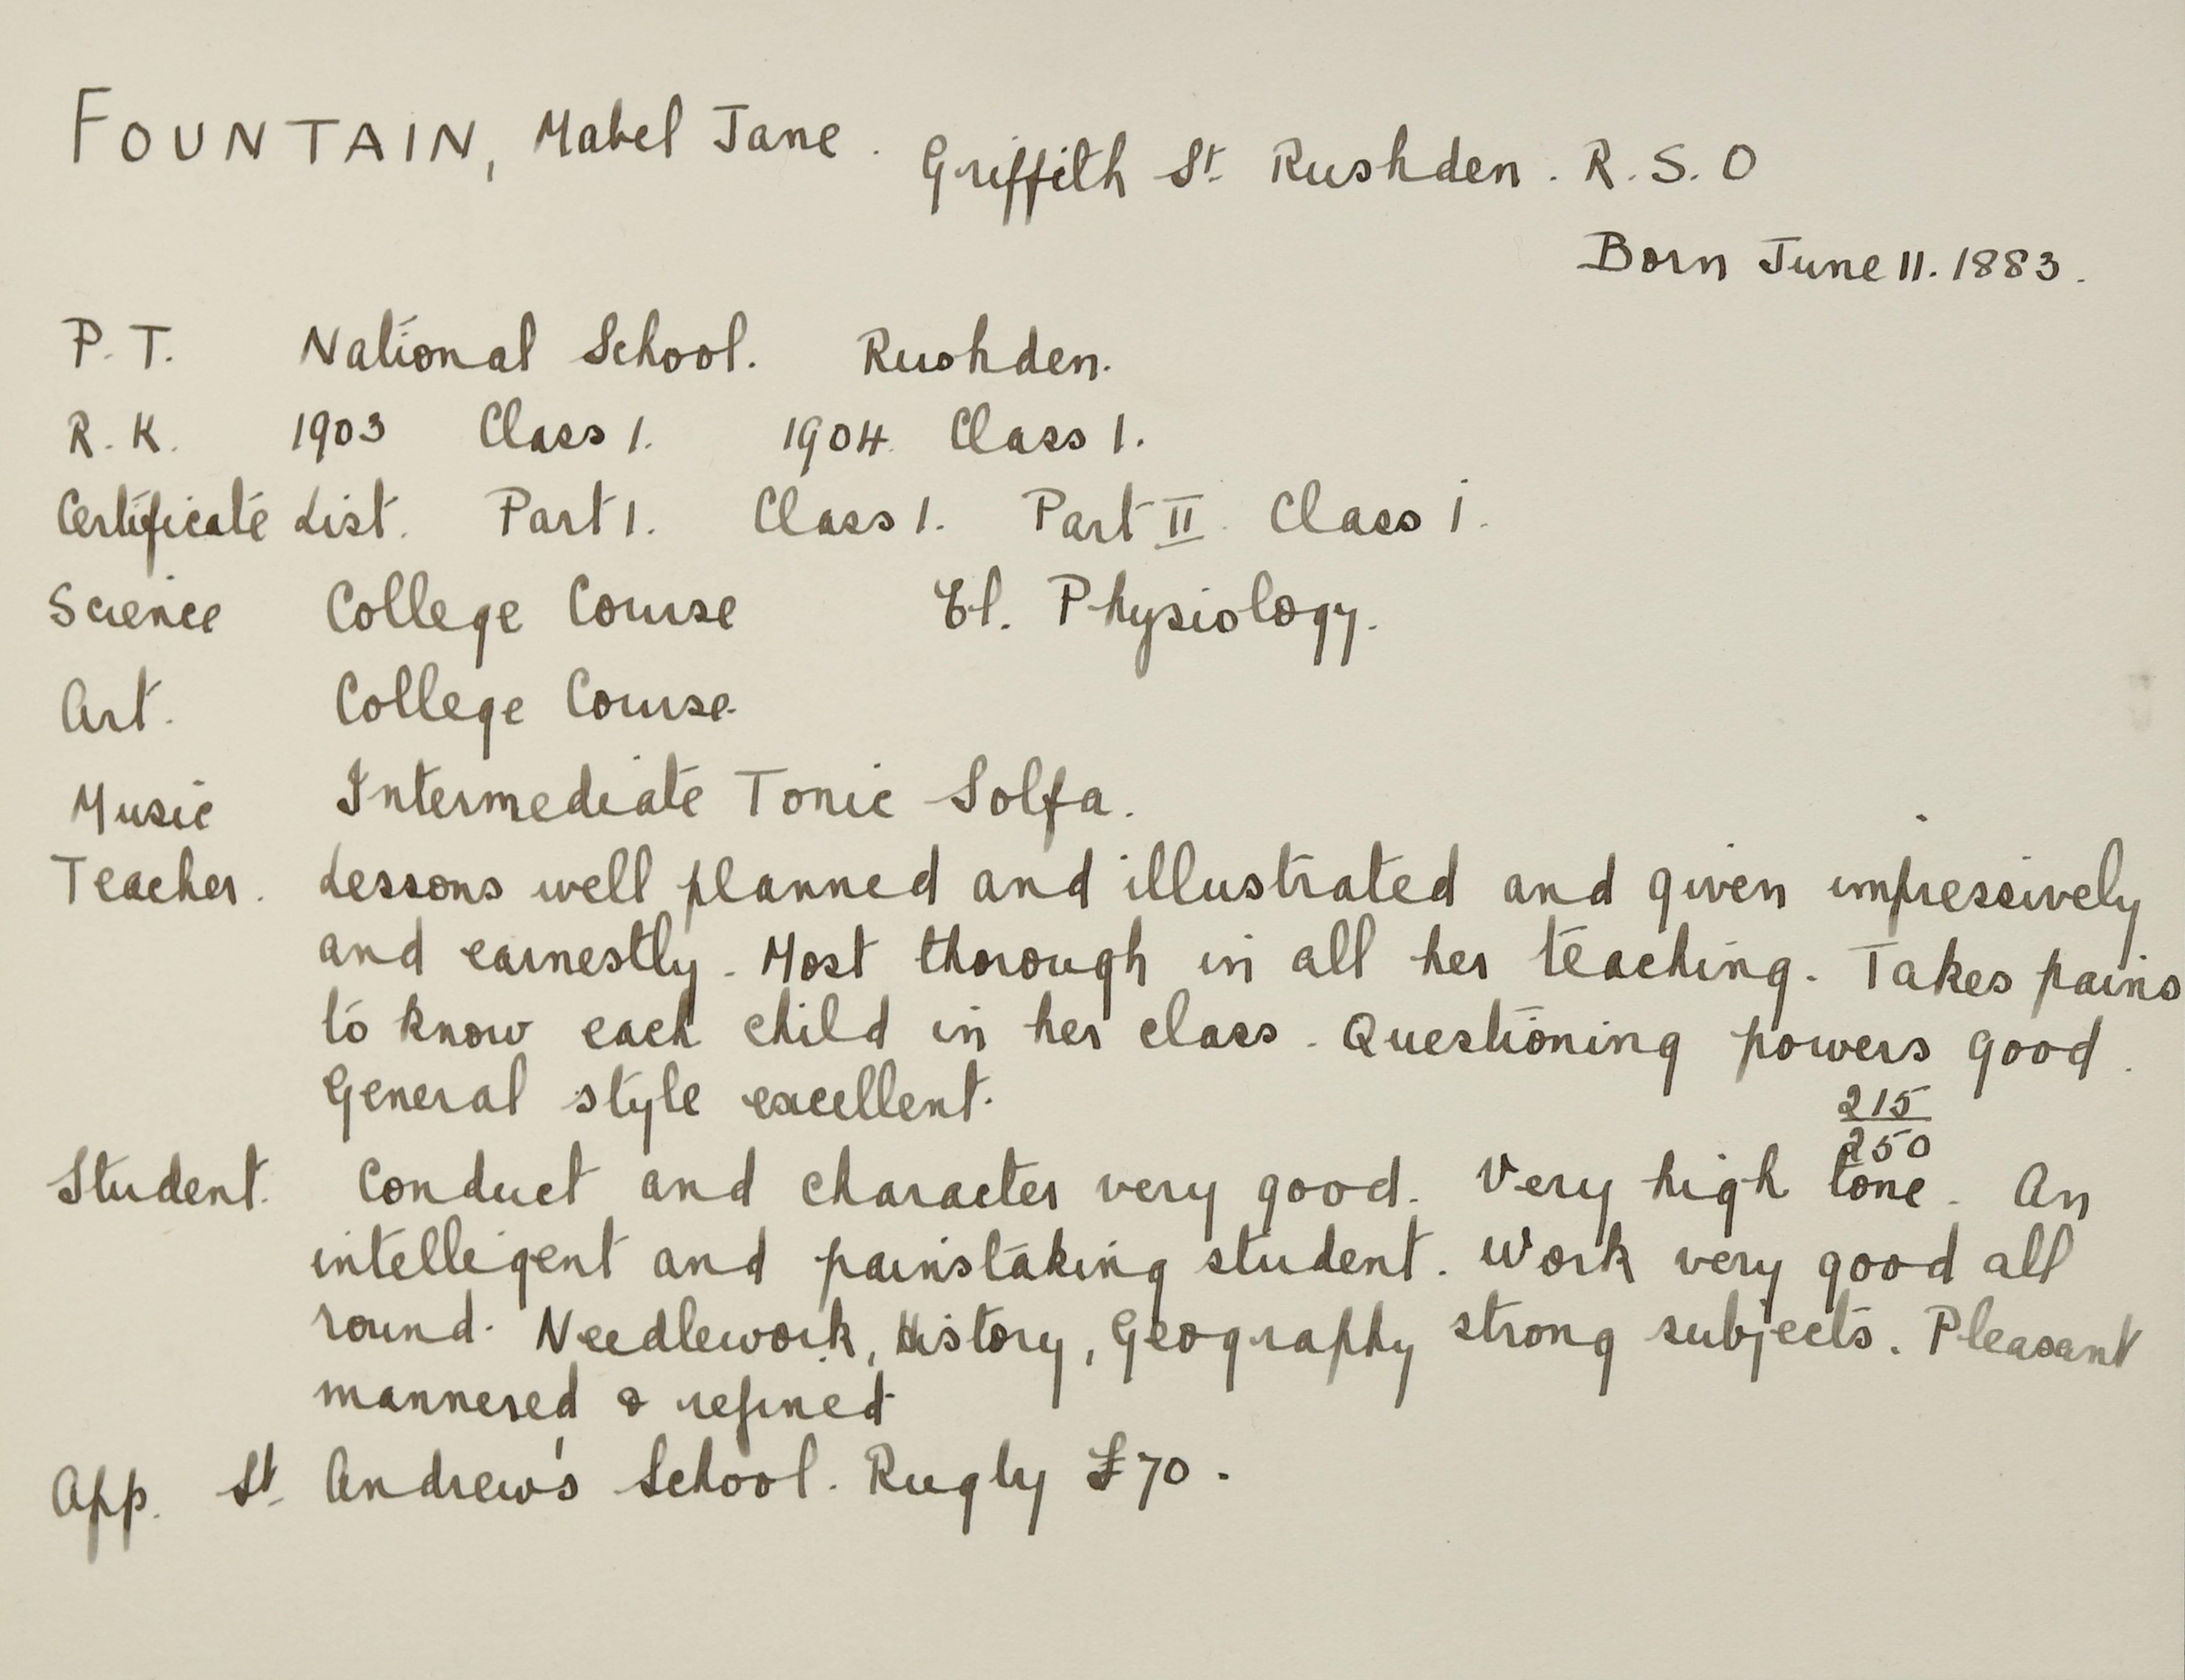 FOUNTAIN, Mabel Jane. Griffith St. Rushden. R.S.O
Born June 11. 1883.
P.T. National School. Rushden.
R.K. 1903 Class 1. 1904. Class 1.
Certificate List. Part 1. Class 1. Part II. Class 1.
Science College Course El. Physiology.
Art. College Course.
Music Intermediate Tonic Solfa.
Teacher. Lessons well planned and illustrated and given impressively
and earnestly. Most thorough in all her teaching. Takes pains
to know each child in her class. Questioning powers good.
General style excellent.
215
250
Student. Conduct and character very good. Very high tone. An
intelligent and painstaking student. Work very good all
round. Needlework, History, Geography strong subjects. Pleasant
mannered & refined
App. St. Andrew's School. Rugby £70.